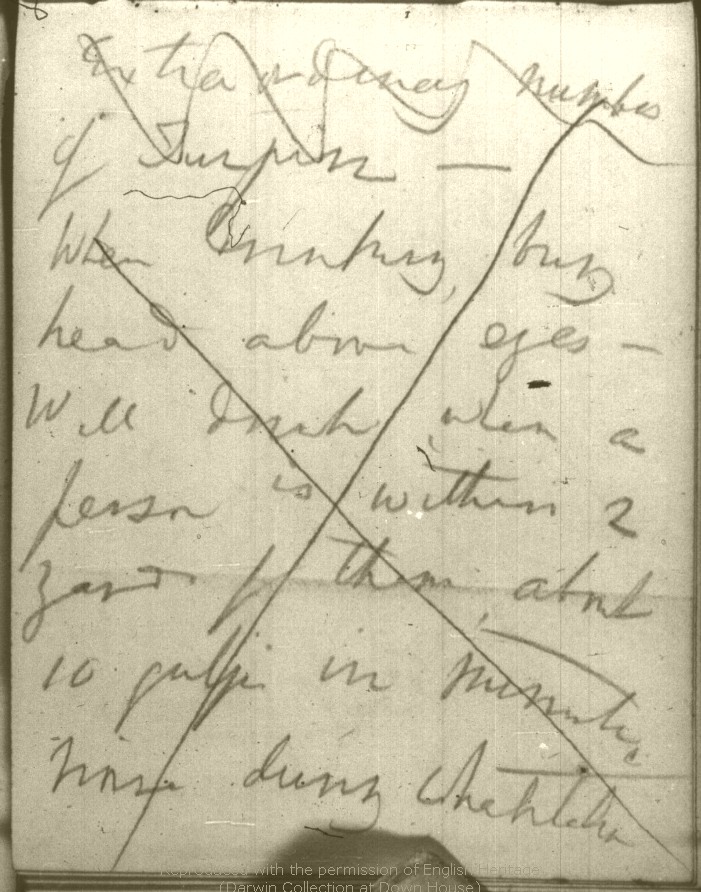 8
Extraordinary number
of Terrapin —
When drinking, bury
head above eyes —
Will drink when a
person is within 2
yard of them, about
10 gulps in minute,
noise during
Reproduced with the permission of English Heritage
(Darwin Collection at Down House)